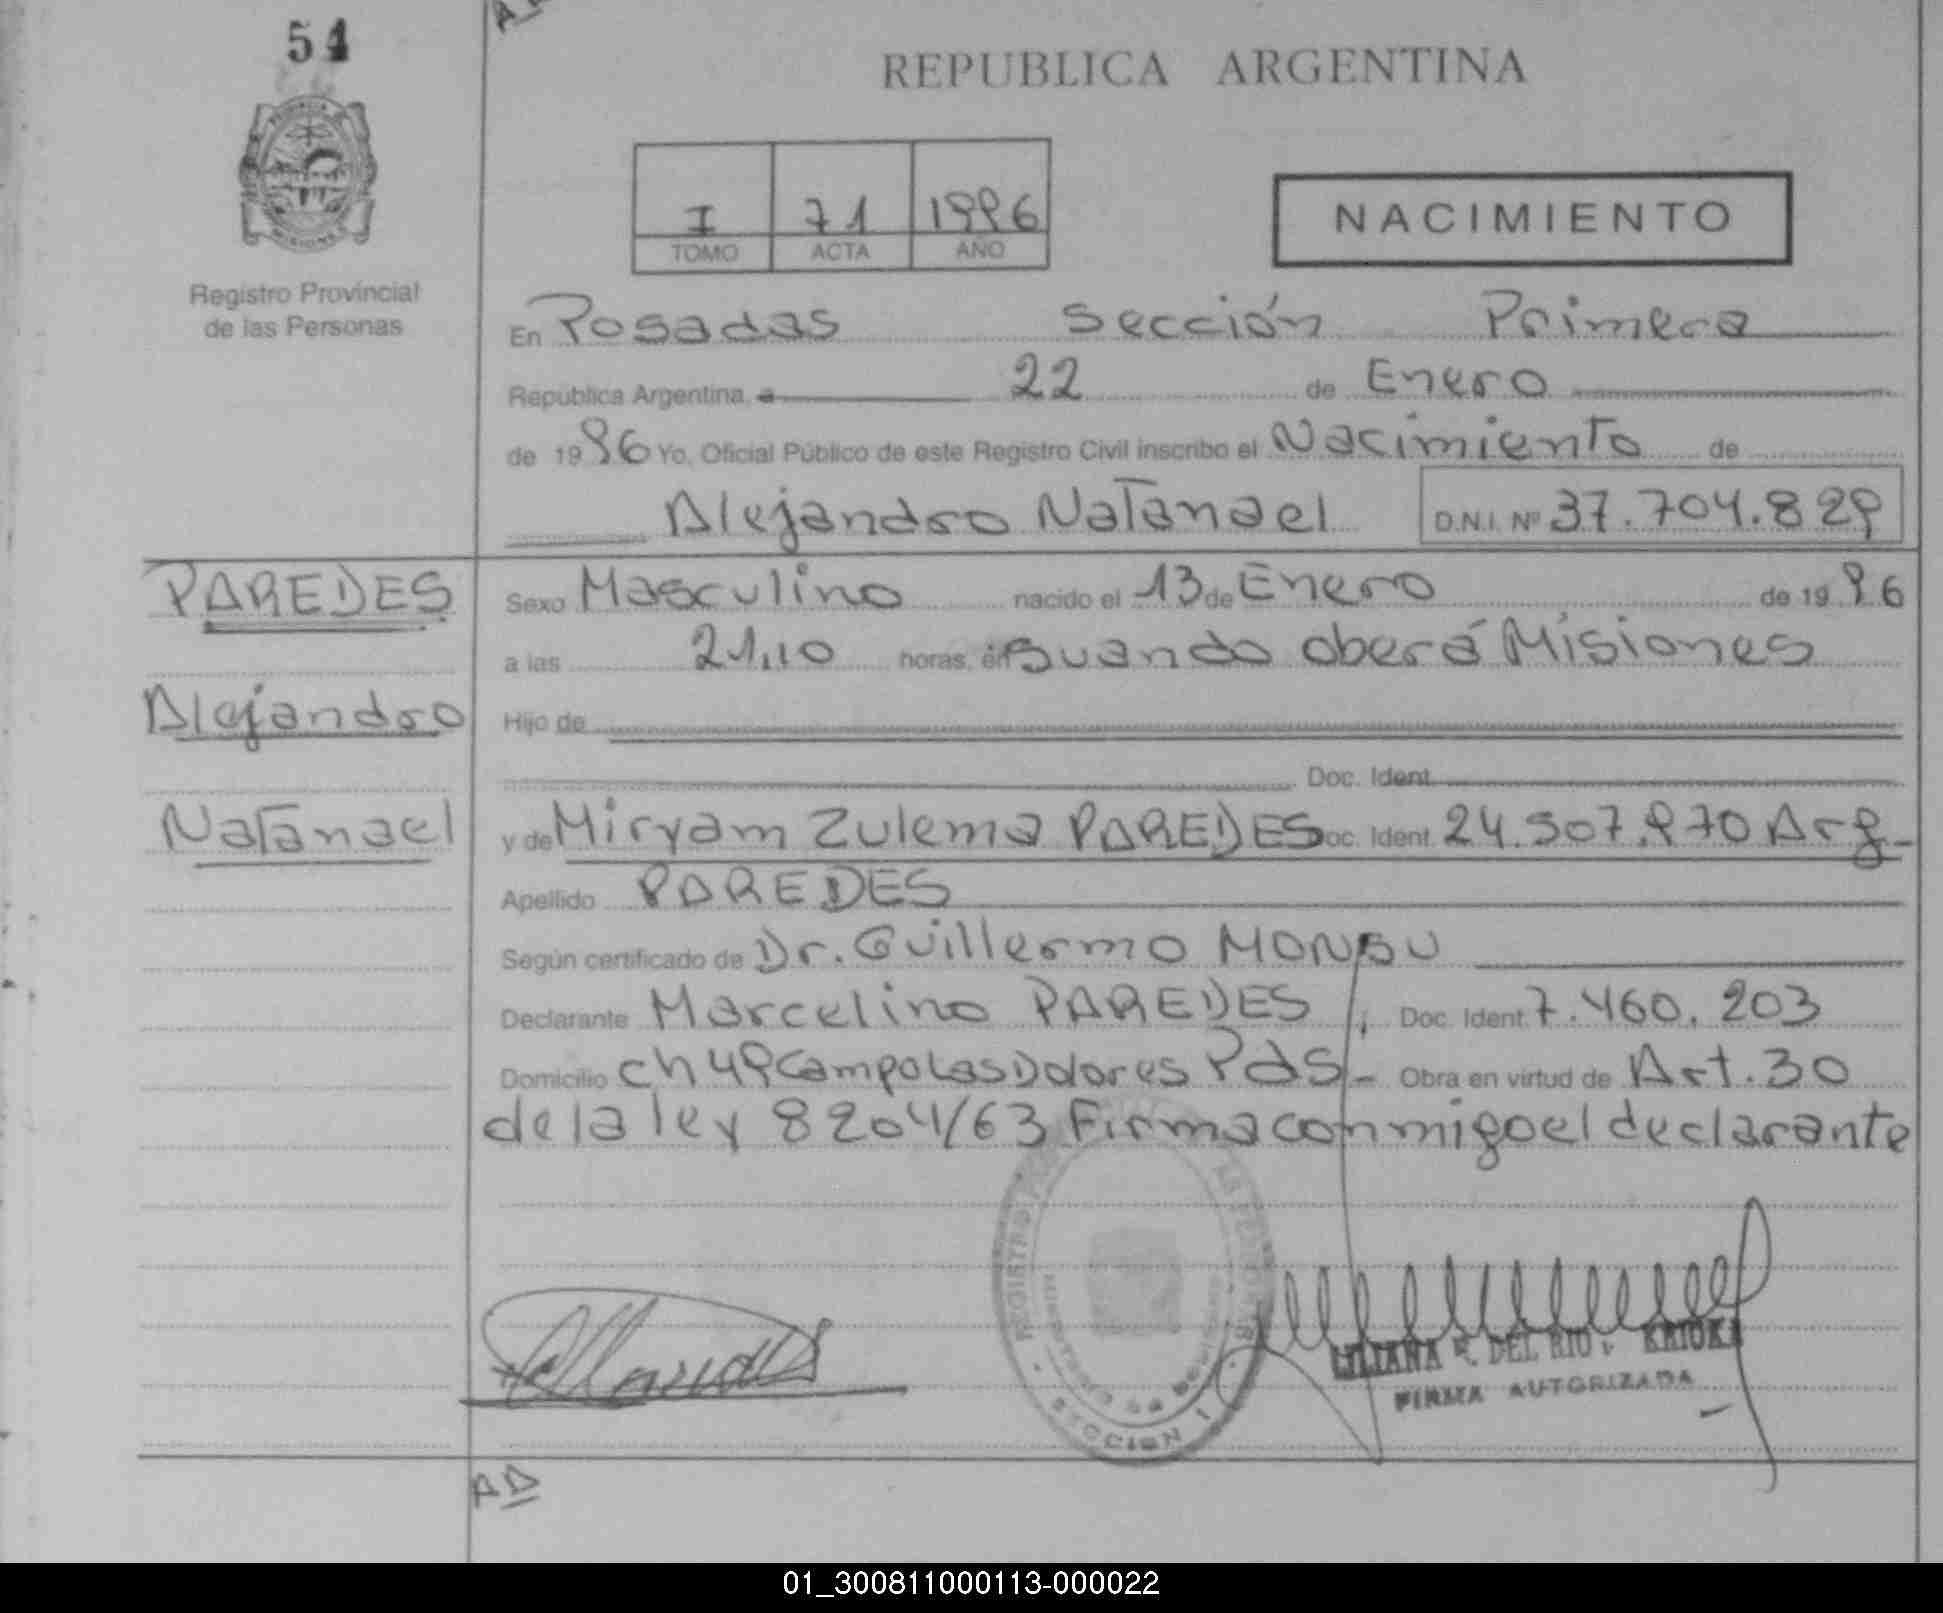 54
REPUBLICA ARGENTINA
I 71 1996
TOMO ACTA AÑO
NACIMIENTO
Registro Provincial
de las Personas
En Posadas Sección Primera
República Argentina, a 22 de Enero
de 1996 Yo, Oficial Público de este Registro Civil inscribo el Nacimiento de
Alejandro Natanael D.N.I. Nº 37.704.829
PAREDES
Alejandro
Natanael
Sexo Masculino nacido el 13 de Enero de 1996
a las 21,10 horas, en Buando oberá Misiones
Hijo de
Doc. Ident.
y de Miryam Zulema PAREDES Doc. Ident. 24.507.970 Arg
Apellido PAREDES
Según certificado de Dr. Guillermo MONBU
Declarante Marcelino PAREDES Doc. Ident. 7.460.203
Domicilio ch 49 Campo Las Dolores Pds - Obra en virtud de Art. 30
de la ley 8204/63 Firma conmigo el declarante
REGISTRO LAS PERSONAS
SECCION 1
LILIANA R. DEL RIO
FIRMA AUTORIZADA
AD
01_300811000113-000022